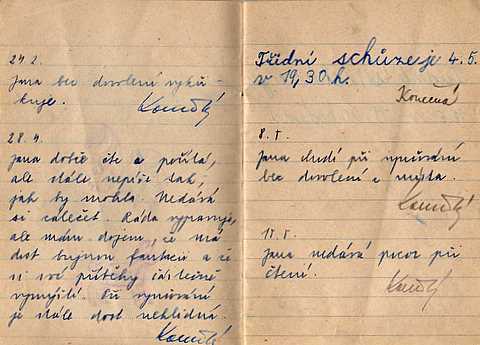 24 2.
Jana bez dovolení vykři-
kuje.
Konečná
28. 4.
Jana dobře čte a počítá,
ale stále nepíše tak,
jak by mohla. Nedává
si záležet. Ráda vypravuje,
ale mám dojem, že má
dost bujnou fantasii a že
si své příběhy částečně
vymýšlí. Při vyučování
je stále dost neklidná.
Konečná
Třídní schůze je 4. 5.
v 19,30 h.
Konečná
8. 5.
Jana chodí při vyučování
bez dovolení z místa.
Konečná
Jana nedává pozor při
čtení.
Konečná